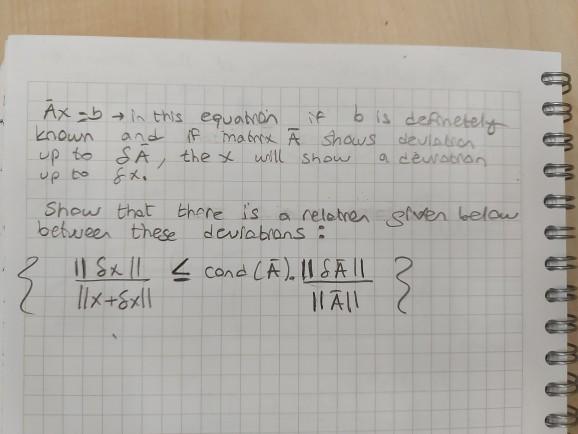 Āx = b → in this equation if b is definetely
known and if matrix Ā shows deviation
up to δĀ, the x will show a deviation
up to δx.
Show that there is a relation given below
between these deviations :
{ ||δx|| / ||x+δx|| ≤ cond(Ā). ||δĀ|| / ||Ā|| }